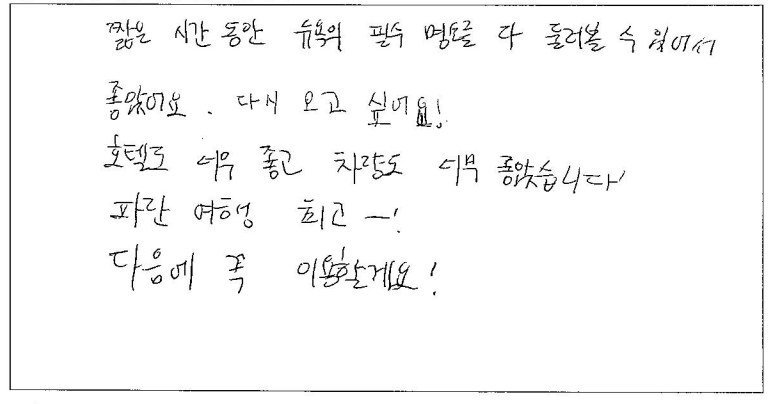 짧은 시간 동안 뉴욕의 필수 명소를 다 둘러볼 수 있어서
좋았어요. 다시 오고 싶어요!
호텔도 너무 좋고 차량도 너무 좋았습니다!
파란 여행 최고 -!
다음에 꼭 이용할게요!